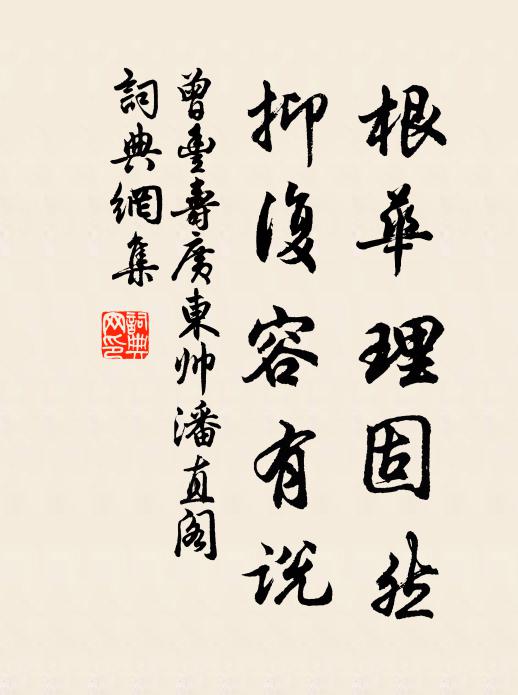 根華理固然
抑復容有說
曾豐壽廣東帥潘直閣
詞典網集
詞典網印